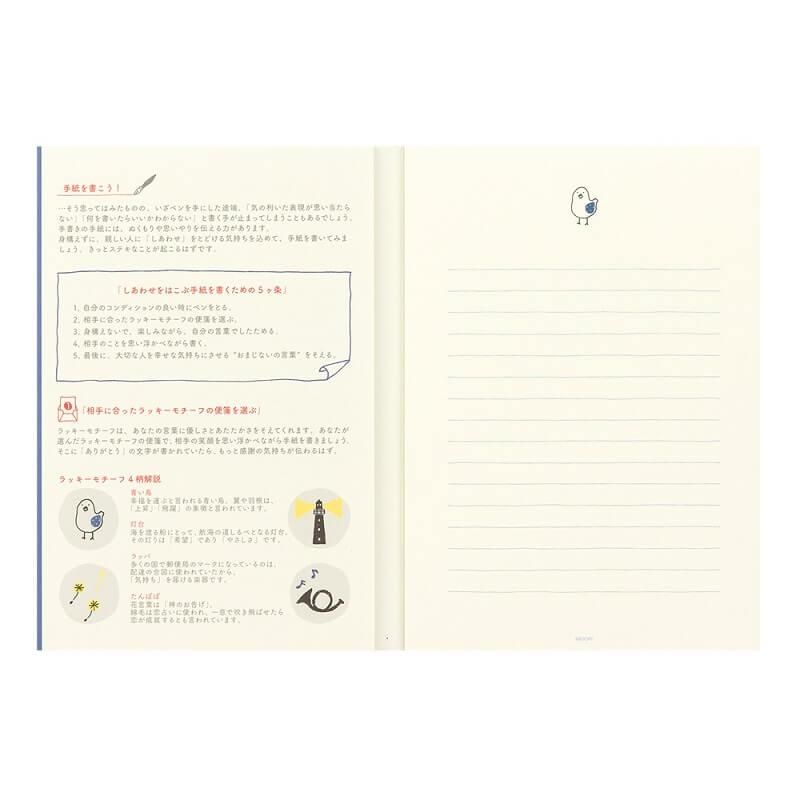 手紙を書こう！
…そう思ってはみたものの、いざペンを手にした途端、「気の利いた表現が思い当たら
ない」「何を書いたらいいかわからない」と書く手が止まってしまうこともあるでしょう。
手書きの手紙には、ぬくもりや思いやりを伝える力があります。
身構えずに、親しい人に「しあわせ」をとどける気持ちを込めて、手紙を書いてみま
しょう。きっとステキなことが起こるはずです。
「しあわせをはこぶ手紙を書くための5ヶ条」
1, 自分のコンディションの良い時にペンをとる。
2, 相手に合ったラッキーモチーフの便箋を選ぶ。
3, 身構えないで、楽しみながら、自分の言葉でしたためる。
4, 相手のことを思い浮かべながら書く。
5, 最後に、大切な人を幸せな気持ちにさせる “おまじないの言葉” をそえる。
1 「相手に合ったラッキーモチーフの便箋を選ぶ」
ラッキーモチーフは、あなたの言葉に優しさとあたたかさをそえてくれます。あなたが
選んだラッキーモチーフの便箋で、相手の笑顔を思い浮かべながら手紙を書きましょう。
そこに「ありがとう」の文字が書かれていたら、もっと感謝の気持ちが伝わるはず。
ラッキーモチーフ4柄解説
青い鳥
幸福を運ぶと言われる青い鳥。翼や羽根は、
「上昇」「飛躍」の象徴と言われています。
灯台
海を渡る船にとって、航海の道しるべとなる灯台。
その灯りは「希望」であり「やさしさ」です。
ラッパ
多くの国で郵便局のマークになっているのは、
配達の合図に使われていたから。
「気持ち」を届ける楽器です。
たんぽぽ
花言葉は「神のお告げ」。
綿毛は恋占いに使われ、一息で吹き飛ばせたら
恋が成就するとも言われています。
MIDORI